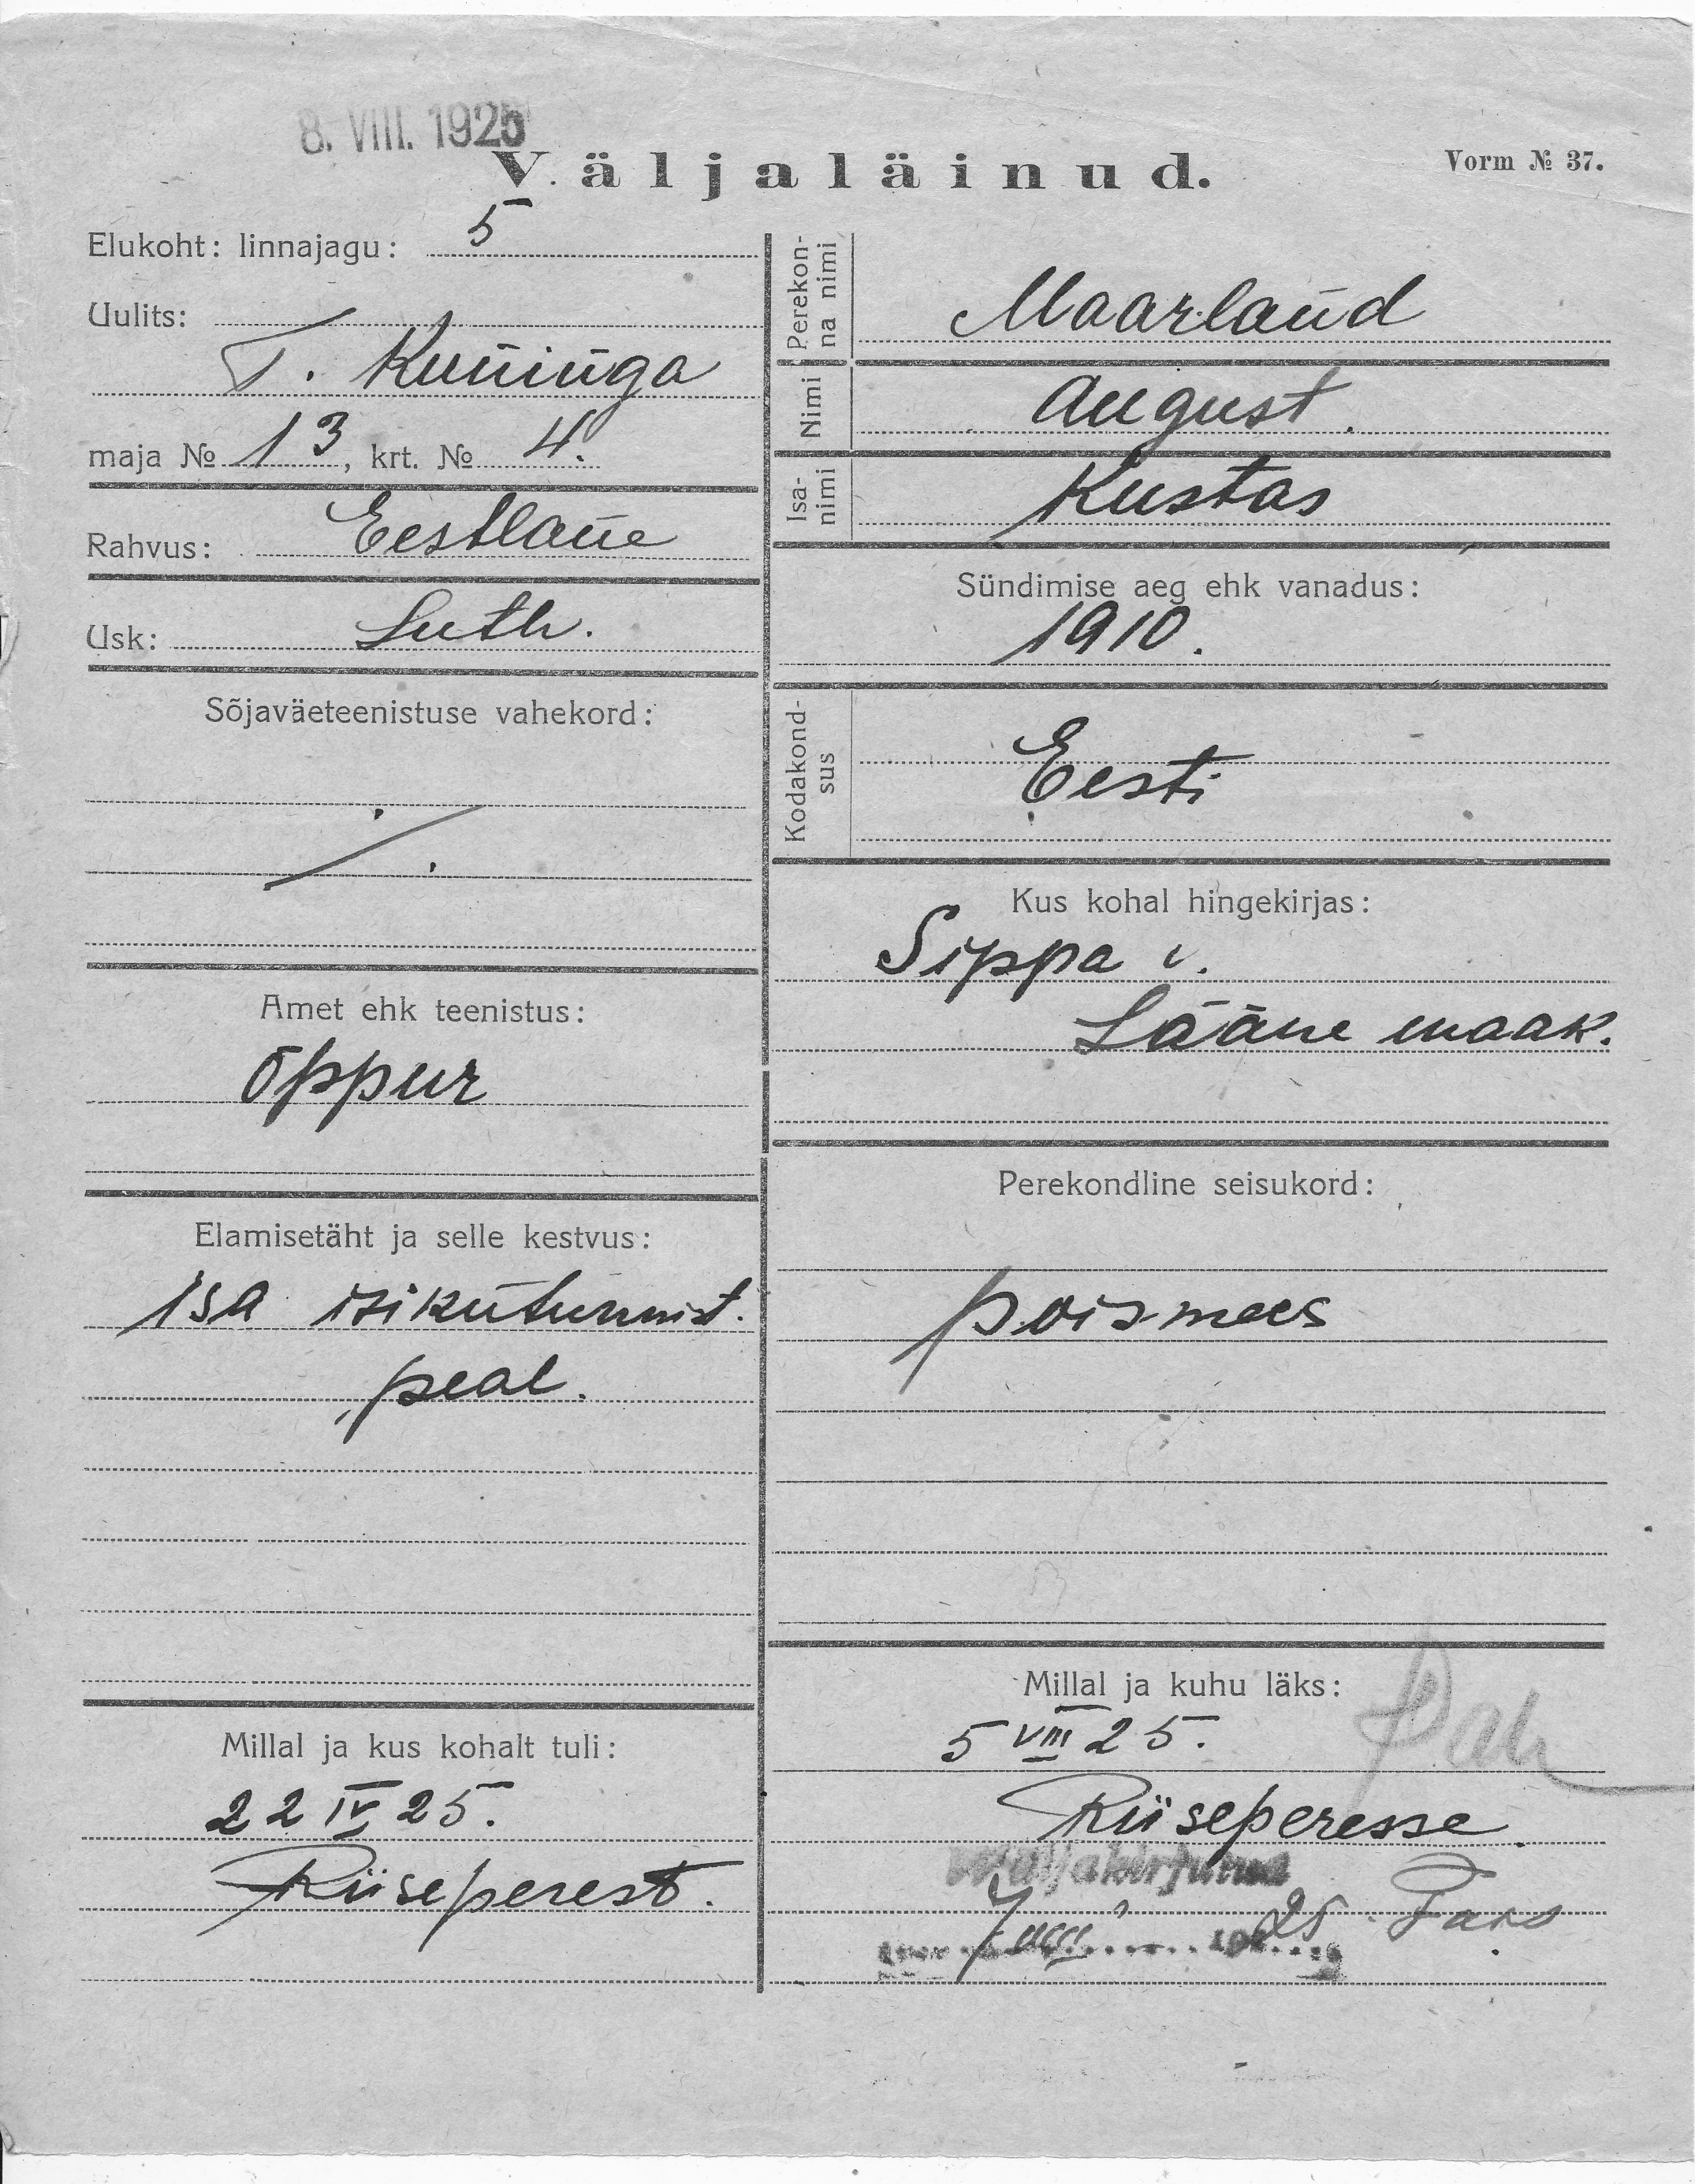 8. VIII. 1925
Väljaläinud.
Vorm № 37.
Elukoht: linnajagu: 5
Uulits:
T. Kuninga
maja № 13, krt. № 4.
Rahvus: Eestlane
Usk: Luth.
Sõjaväeteenistuse vahekord:
Amet ehk teenistus:
õppur
Elamisetäht ja selle kestvus:
Isa isikutunnist.
peal.
Millal ja kus kohalt tuli:
22 IV 25.
Riiseperest.
Perekon-
na nimi
Maarland
Nimi August.
Isa-
nimi
Kustas
Sündimise aeg ehk vanadus:
1910.
Kodakond-
sus
Eesti
Kus kohal hingekirjas:
Sippa v.
Lääne maak.
Perekondline seisukord:
poismees
Millal ja kuhu läks:
5 VIII 25.
Riiseperesse.
Väljakirjutud
7 VIII 1925